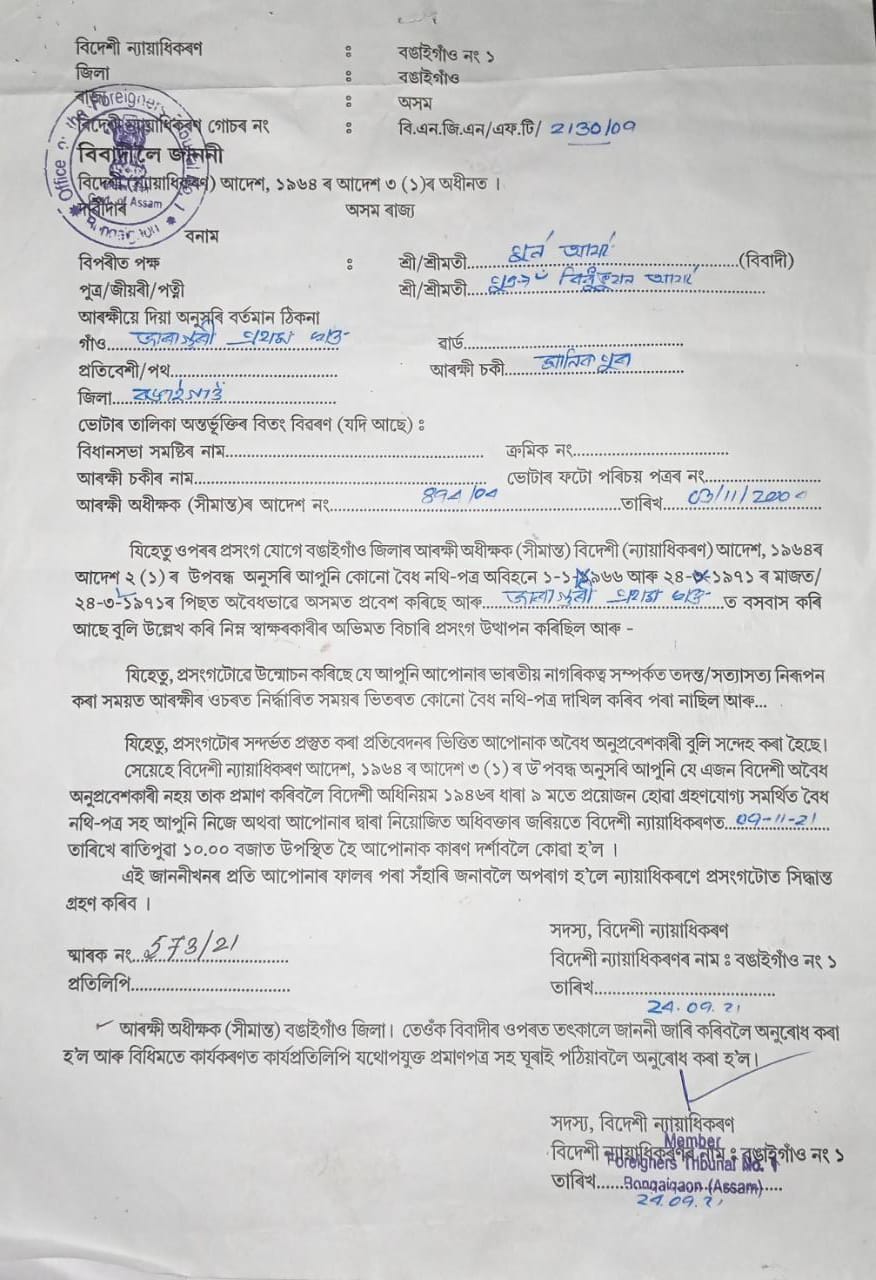 বিদেশী ন্যায়াধিকৰণ : বঙাইগাঁও নং ১
জিলা : বঙাইগাঁও
ৰাজ্য : অসম
বিদেশী ন্যায়াধিকৰণ গোচৰ নং : বি.এন.জি.এন/এফ.টি/ 2130/09
বিবাদীলৈ জাননী
বিদেশী (ন্যায়াধিকৰণ) আদেশ, ১৯৬৪ ৰ আদেশ ৩ (১)ৰ অধীনত ।
অসম ৰাজ্য
বনাম
বিপৰীত পক্ষ : শ্ৰী/শ্ৰীমতী..........(বিবাদী)
পুত্ৰ/জীয়ৰী/পত্নী শ্ৰী/শ্ৰীমতী..........
আৰক্ষীয়ে দিয়া অনুসৰি বৰ্তমান ঠিকনা
গাঁও.......... প্ৰথম খণ্ড ৱাৰ্ড..........
প্ৰতিবেশী/পথ.......... আৰক্ষী চকী.....মানিকপুৰ.....
জিলা.....বঙাইগাওঁ.....
ভোটাৰ তালিকা অন্তৰ্ভূক্তিৰ বিতং বিৱৰণ (যদি আছে) :
বিধানসভা সমষ্টিৰ নাম.......... ক্ৰমিক নং..........
আৰক্ষী চকীৰ নাম.......... ভোটাৰ ফটো পৰিচয় পত্ৰৰ নং..........
আৰক্ষী অধীক্ষক (সীমান্ত)ৰ আদেশ নং.....894/04.....তাৰিখ..........
যিহেতু ওপৰৰ প্ৰসংগ যোগে বঙাইগাঁও জিলাৰ আৰক্ষী অধীক্ষক (সীমান্ত) বিদেশী (ন্যায়াধিকৰণ) আদেশ, ১৯৬৪ৰ
আদেশ ২ (১) ৰ উপবন্ধ অনুসৰি আপুনি কোনো বৈধ নথি-পত্ৰ অবিহনে ১-১-১৯৬৬ আৰু ২৪-৩-১৯৭১ ৰ মাজত/
২৪-৩-১৯৭১ৰ পিছত অবৈধভাৱে অসমত প্ৰবেশ কৰিছে আৰু.......... প্ৰথম খণ্ড.....ত বসবাস কৰি
আছে বুলি উল্লেখ কৰি নিম্ন স্বাক্ষৰকাৰীৰ অভিমত বিচাৰি প্ৰসংগ উত্থাপন কৰিছিল আৰু -
যিহেতু, প্ৰসংগটোৱে উন্মোচন কৰিছে যে আপুনি আপোনাৰ ভাৰতীয় নাগৰিকত্ব সম্পৰ্কত তদন্ত/সত্যাসত্য নিৰূপন
কৰা সময়ত আৰক্ষীৰ ওচৰত নিৰ্দ্ধাৰিত সময়ৰ ভিতৰত কোনো বৈধ নথি-পত্ৰ দাখিল কৰিব পৰা নাছিল আৰু...
যিহেতু, প্ৰসংগটোৰ সন্দৰ্ভত প্ৰস্তুত কৰা প্ৰতিবেদনৰ ভিত্তিত আপোনাক অবৈধ অনুপ্ৰবেশকাৰী বুলি সন্দেহ কৰা হৈছে।
সেয়েহে বিদেশী ন্যায়াধিকৰণ আদেশ, ১৯৬৪ ৰ আদেশ ৩ (১) ৰ উপবন্ধ অনুসৰি আপুনি যে এজন বিদেশী অবৈধ
অনুপ্ৰবেশকাৰী নহয় তাক প্ৰমাণ কৰিবলৈ বিদেশী অধিনিয়ম ১৯৪৬ৰ ধাৰা ৯ মতে প্ৰয়োজন হোৱা গ্ৰহণযোগ্য সমৰ্থিত বৈধ
নথি-পত্ৰ সহ আপুনি নিজে অথবা আপোনাৰ দ্বাৰা নিয়োজিত অধিবক্তাৰ জৰিয়তে বিদেশী ন্যায়াধিকৰণত..09-11-21
তাৰিখে ৰাতিপুৱা ১০.০০ বজাত উপস্থিত হৈ আপোনাক কাৰণ দৰ্শাবলৈ কোৱা হ'ল ।
এই জাননীখনৰ প্ৰতি আপোনাৰ ফালৰ পৰা সঁহাৰি জনাবলৈ অপৰাগ হ'লে ন্যায়াধিকৰণে প্ৰসংগটোত সিদ্ধান্ত
গ্ৰহণ কৰিব ।
সদস্য, বিদেশী ন্যায়াধিকৰণ
স্মাৰক নং...573/21.......... বিদেশী ন্যায়াধিকৰণৰ নাম : বঙাইগাঁও নং ১
প্ৰতিলিপি.......... তাৰিখ..........
24.09.21
আৰক্ষী অধীক্ষক (সীমান্ত) বঙাইগাঁও জিলা। তেওঁক বিবাদীৰ ওপৰত তৎকালে জাননী জাৰি কৰিবলৈ অনুৰোধ কৰা
হ'ল আৰু বিধিমতে কাৰ্যকৰণত কাৰ্যপ্ৰতিলিপি যথোপযুক্ত প্ৰমাণপত্ৰ সহ ঘূৰাই পঠিয়াবলৈ অনুৰোধ কৰা হ'ল।
সদস্য, বিদেশী ন্যায়াধিকৰণ
Member
বিদেশী ন্যায়াধিকৰণৰ নাম : বঙাইগাঁও নং ১
Foreigners Tribunal No. 1
তাৰিখ......Bongaigaon (Assam)....
24.09.21